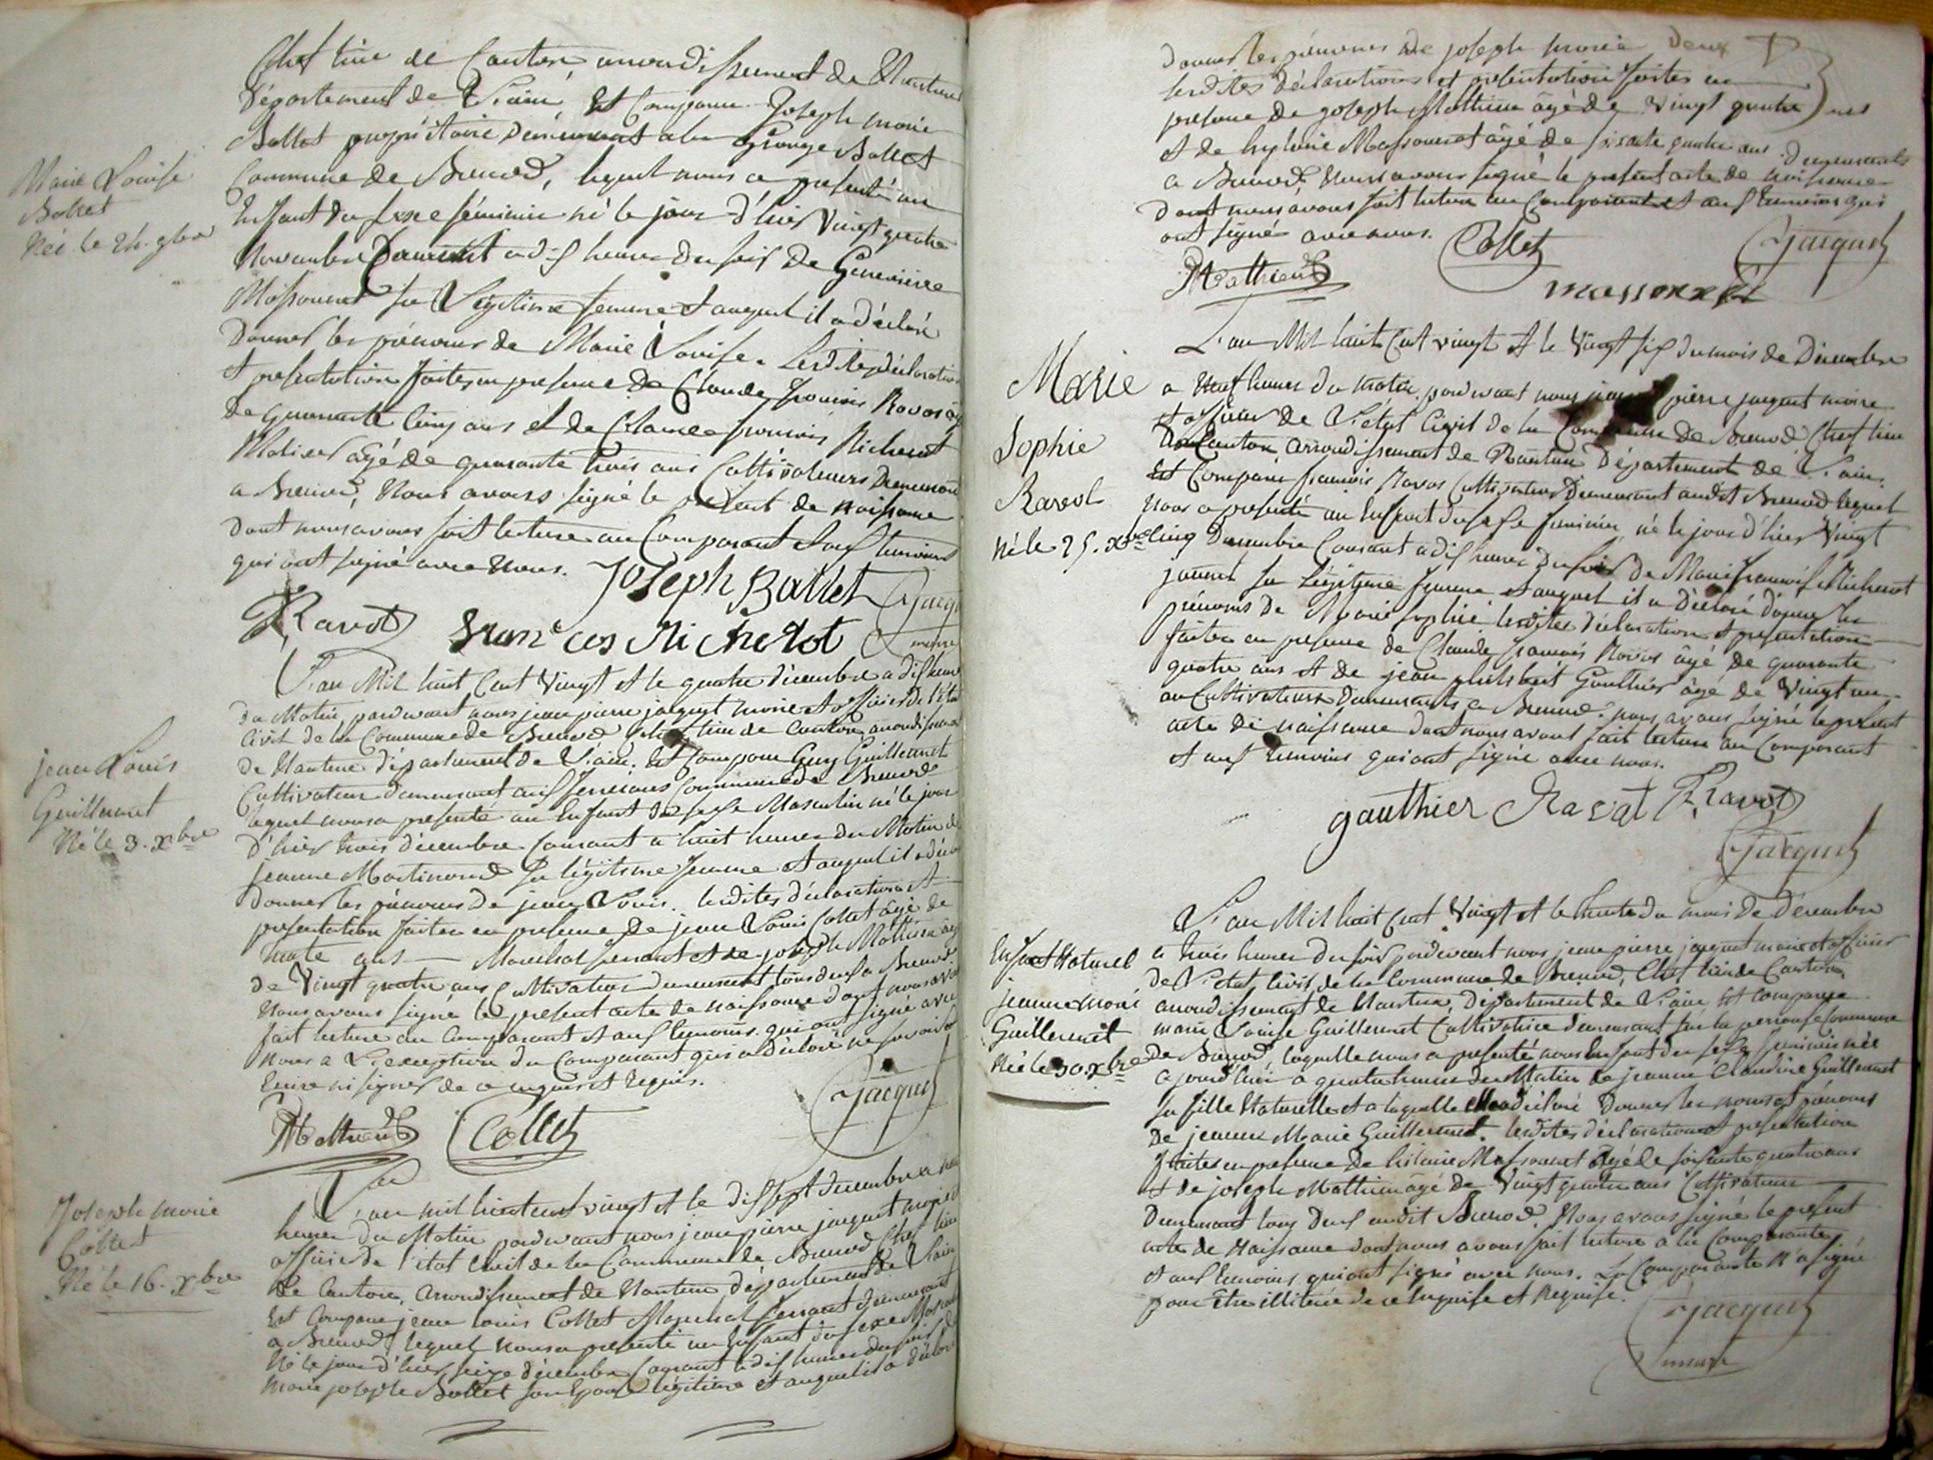 Chef lieu de Canton arrondissement de Nantua
Département de L'ain, Est Comparu Joseph marie
Ballet propriétaire demeurant a la Grange Ballet
Commune de Brenod, lequel nous a presenté un
Enfant du sexe féminin né le jour d'hier Vingt quatre
Novembre Courant a dix heures du soir de
Massonnet sa Légitime femme et auquel il a déclaré
Donner les prénoms de Marie Louise. Lesdites déclaration
et presentation faites en presence de Claude françois Ravot âgé
de quarante Cinq ans et de Claude françois Michelot
âgé de quarante trois ans Cultivateurs Demeurant
a Brenod, Nous avons signé le présent de naissance
dont nous avons fait lecture au Comparant et aux temoins
qui ont signé avec Nous.
Joseph Ballet
Jacquet
Ravot
Michelot
maire
Marie Louise
Ballet
Née le 24. 9bre
L'an Mil huit Cent Vingt et le quatre décembre a dix heures
du Matin, pardevant nous jean pierre jacquet maire et officier de l'état
Civil de la Commune de Brenod chef lieu de canton arrondissement
de Nantua département de L'ain. Est Comparu Guy Guillermet
Cultivateur demeurant aux Commune de Brenod
lequel nous a presenté un Enfant du sexe Masculin né le jour
D'hier trois décembre Courant a huit heures du Matin de
jeanne Martinand sa légitime femme et auquel il a déclaré
Donner les prénoms de jean Louis. lesdites déclaration et
presentation faites en presence de jean Louis Collet âgé de
trente ans — Marechal ferrant et de joseph Mathieu âgé
de Vingt quatre ans Cultivateur demeurant tous deux a Brenod
Nous avons signé le present acte de naissance dont nous avons
fait lecture au Comparant et aux temoins qui ont signé avec
nous a L'exception du Comparant qui a déclaré ne savoir
Ecrire ni signer de ce enquis et Requis.
Jacquet
Mathieu
Collet
jean Louis
Guillermet
Né le 3. Xbre
L'an mil huit cent vingt et le dix sept decembre a
heures du Matin pardevant nous jean pierre jacquet maire et
officier de l'état Civil de la Commune de Brenod Chef lieu
de Canton, arrondissement de Nantua, département de L'ain
Est Comparu jean louis Collet Marechal ferrant demeurant
a Brenod lequel nous a presenté un Enfant du sexe Masculin
Né le jour d'hier seize décembre Courant a dix heures du soir de
Marie josephe Ballet son Epouse légitime et auquel il a déclaré
Joseph marie
Collet
Né le 16. Xbre
donner les prénoms de joseph marie Deux
lesdites déclaration et presentation faites en
presence de joseph Mathieu âgé de vingt quatre ans
et de hylaire Massonnet âgé de soixante quatre ans Demeurants
a Brenod, Nous avons signé le present acte de naissance
dont nous avons fait lecture au Comparant et aux temoins qui
ont signé avec nous.
Collet
Jacquet
Mathieu
massonnet
L'an Mil huit Cent vingt et le Vingt six du mois de Décembre
a Neuf heures du matin, pardevant nous jean pierre jacquet maire
et officier de L'état Civil de la Commune de Brenod Chef lieu
de Canton arrondissement de Nantua Département de L'ain.
Est Comparu françois Ravot Cultivateur Demeurant audit Brenod lequel
nous a presenté un Enfant du sexe feminin, né le jour d'hier Vingt
Cinq Decembre Courant a dix heures du soir de Marie françoise Michelot
sa Légitime femme et auquel il a Déclaré donner les
prénoms de Marie sophie lesdites déclaration et presentation
faites en presence de Claude françois Ravot âgé de quarante
quatre ans et de jean philibert Gauthier âgé de Vingt un
an Cultivateurs Demeurants a Brenod. nous avons signé le present
acte de naissance dont nous avons fait lecture au Comparant
et aux temoins qui ont signé avec nous.
gauthier Ravat Ravot
Jacquet
Marie
Sophie
Ravot
Né le 25. Xbre
L'an Mil huit Cent Vingt et le trente du mois de Décembre
a trois heures du soir pardevant nous jean pierre jacquet maire et officier
de L'etat Civil de la Commune de Brenod, Chef lieu de Canton
arrondissement de Nantua, Département de L'ain Est Comparue
marie Louise Guillermet Cultivatrice demeurant sur la commune
de Brenod, laquelle nous a presenté nous Enfant du sexe feminin née
a jourd'hui a quatre heures du Matin de jeanne Claudine Guillermet
sa fille Naturelle et a laquelle Elle a déclaré Donner les noms et prénoms
de jeanne Marie Guillermet. lesdites déclaration et presentation
faites en presence de hilaire Massonnet âgé de soixante quatre ans
et de joseph Mathieu âgé de Vingt quatre ans Cultivateurs
Demeurant tous Deux audit Brenod. Nous avons signé le present
acte de Naissance dont nous avons fait lecture a la Comparante
et aux temoins qui ont signé avec nous. La Comparante N'a signé
pour être illiterée de ce Enquise et Requise.
Jacquet
maire
Enfant Naturel
jeanne marie
Guillermet
Née le 30. Xbre